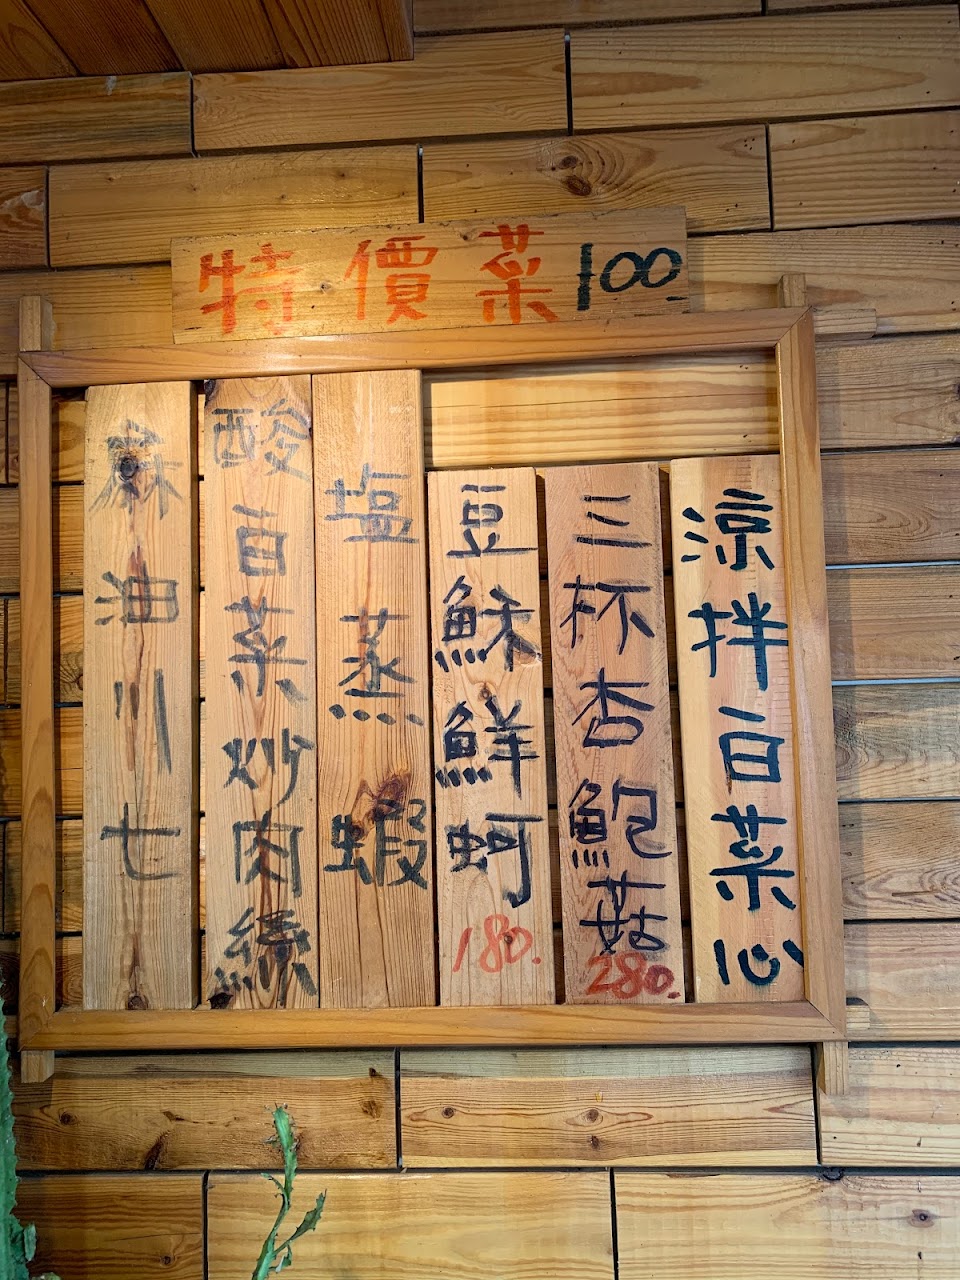 特價菜100.
涼拌白菜心
三杯杏鮑菇
280.
豆穌鮮蚵
180.
塩蒸蝦
酸白菜炒肉絲
麻油川七